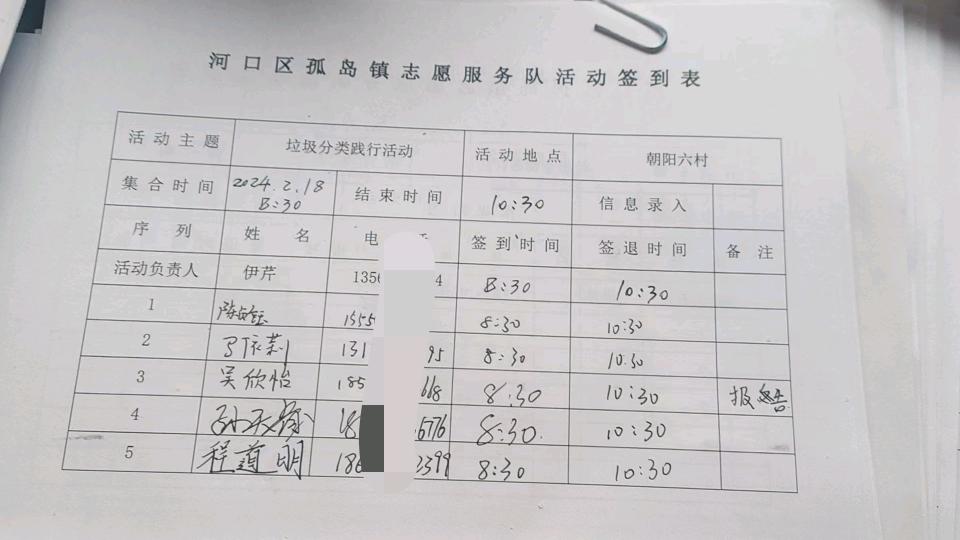 河口区孤岛镇志愿服务队活动签到表
活动主题 垃圾分类践行活动 活动地点 朝阳六村
集合时间 2024.2.18 8:30 结束时间 10:30 信息录入
序列 姓名 电 签到时间 签退时间 备注
活动负责人 伊芹 1356 4 8:30 10:30
1 陈 1555 8:30 10:30
2 依莉 131 95 8:30 10:30
3 吴欣怡 185 668 8:30 10:30 报
4 孙 18 6776 8:30. 10:30
5 程道明 186 3399 8:30 10:30